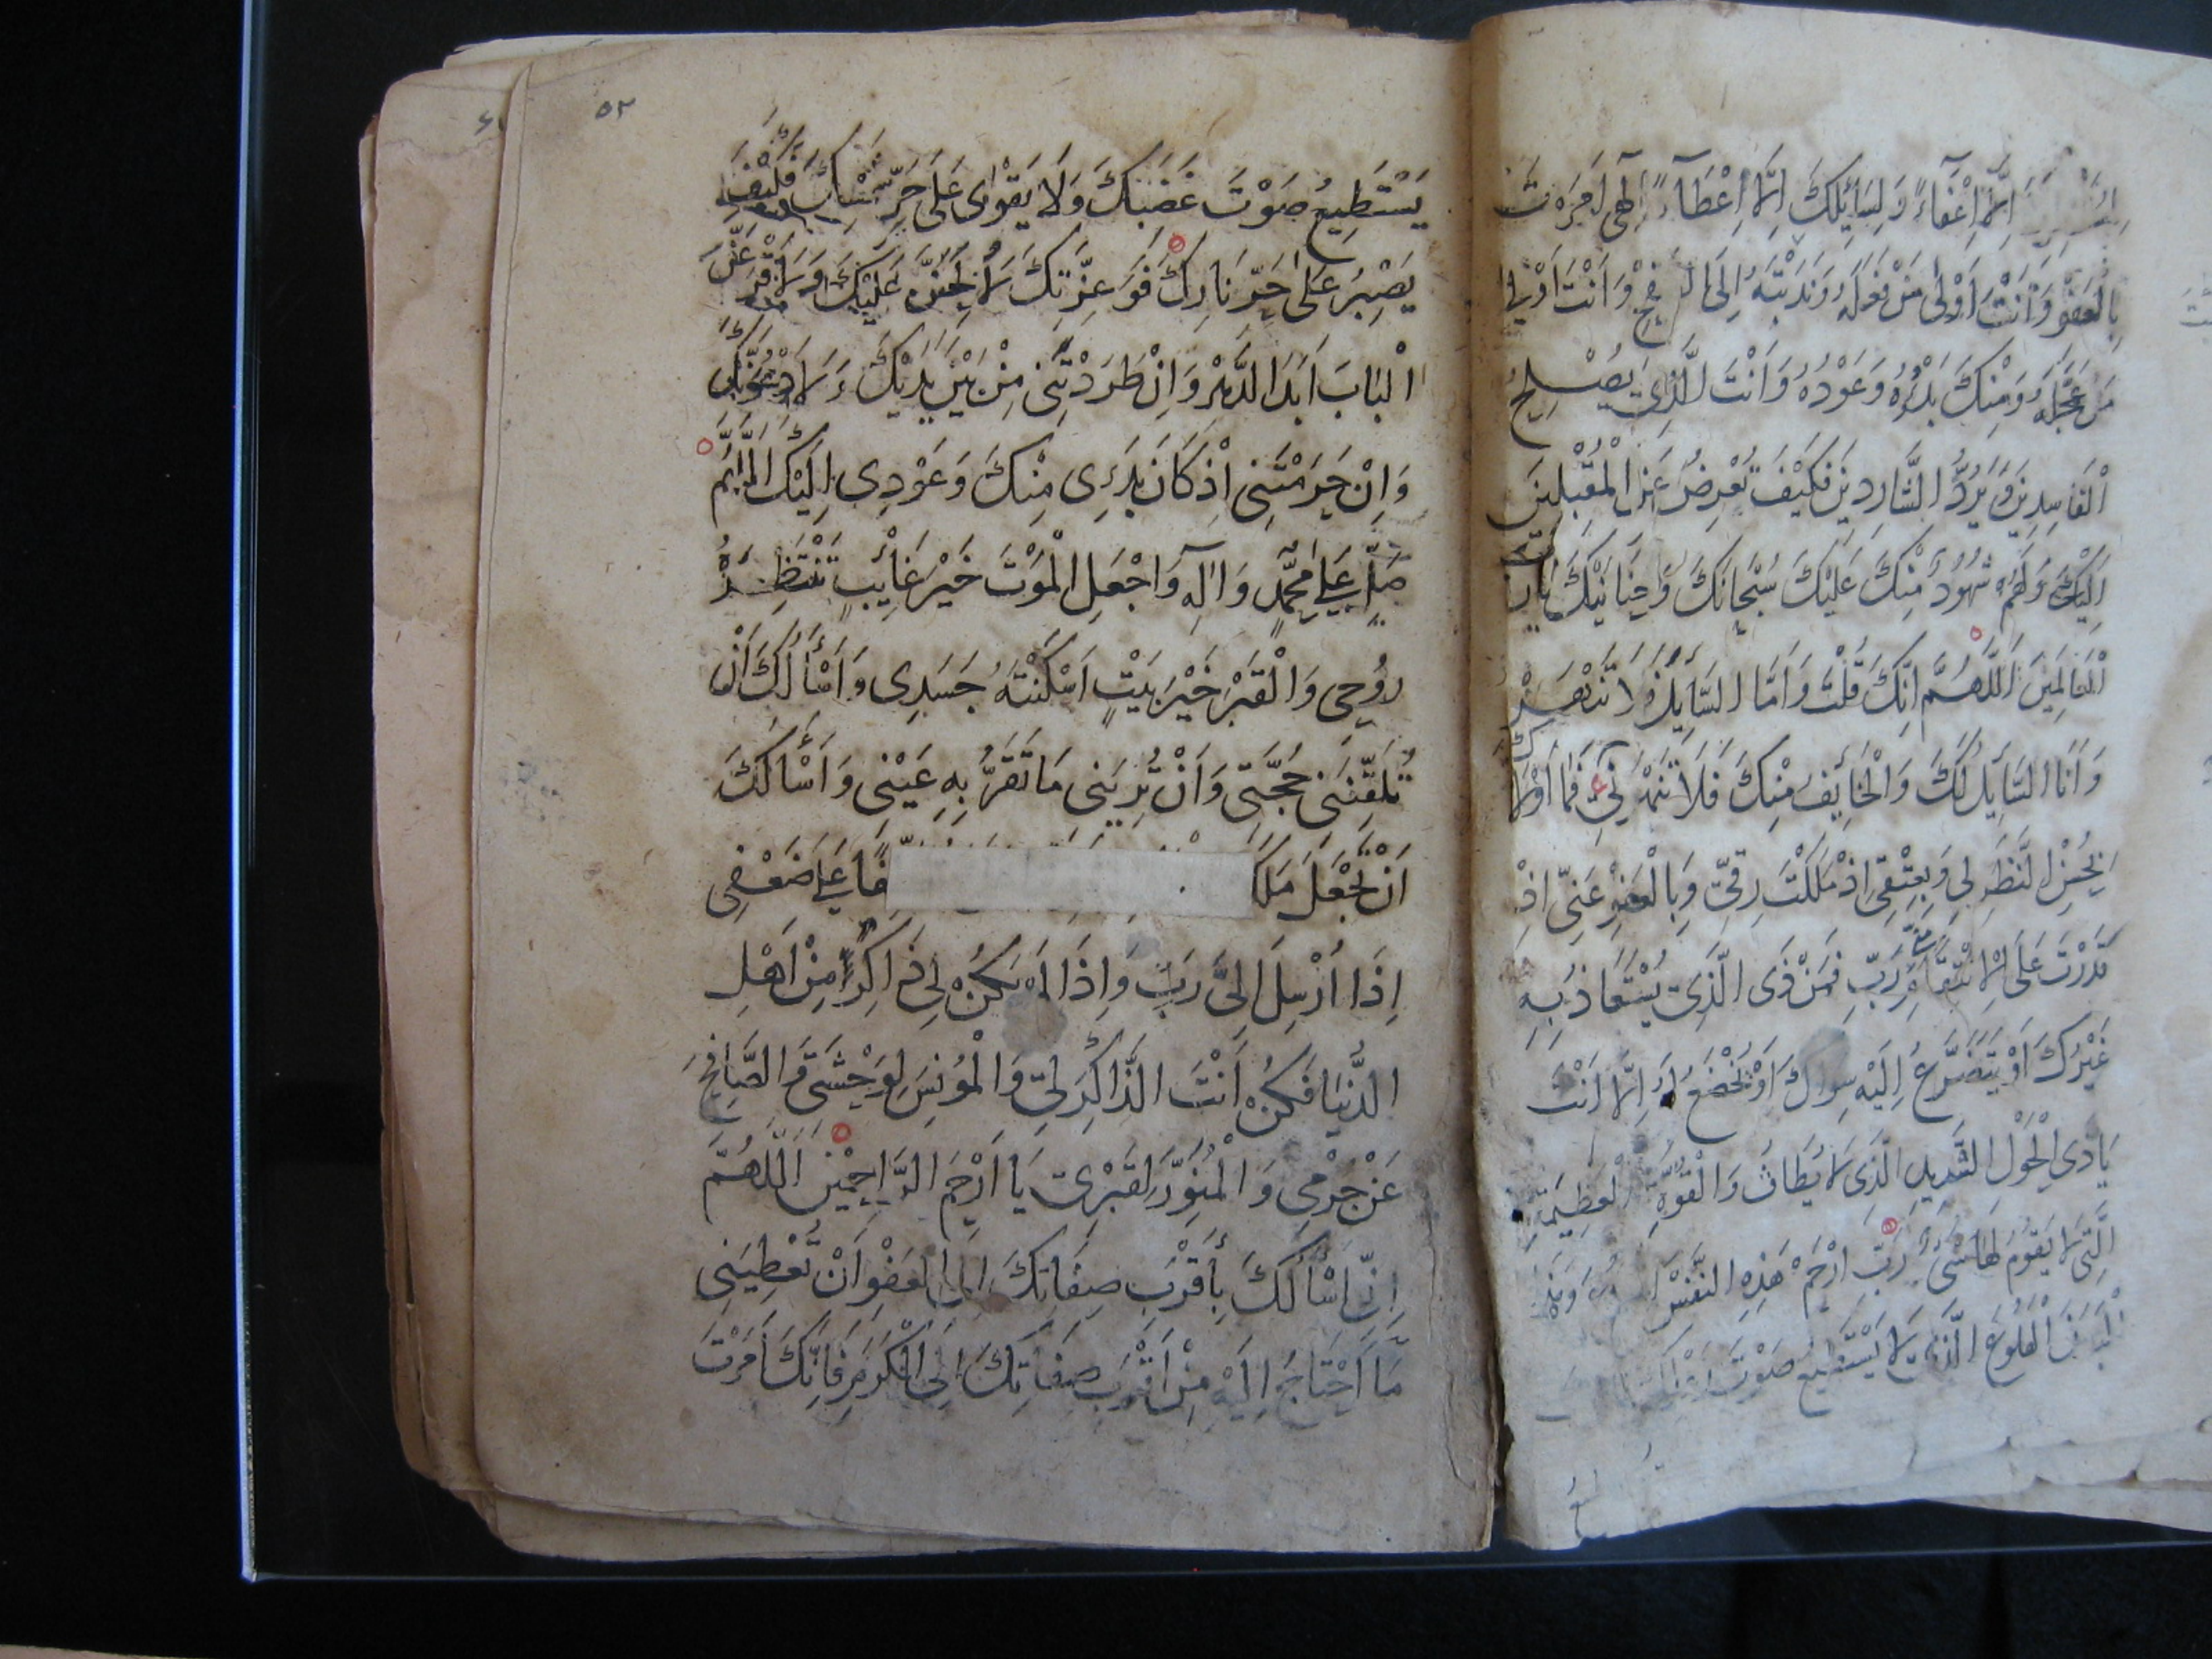 إِلَّا إِعْفَاءً وَلِسَائِلِكَ إِلَّا إِعْطَاءً إِلٰهِي أَمَرْتَ
بِالْعَفْوِ وَأَنْتَ أَوْلَى مَنْ فَعَلَهُ وَنَدَبْتَهُ إِلَى وَأَنْتَ
مَنْ وَمِنْكَ بَدْؤُهُ وَعَوْدُهُ وَأَنْتَ الَّذِي يُصْلِحُ
الْفَاسِدِينَ وَيَرُدُّ الشَّارِدِينَ فَكَيْفَ تُعْرِضُ عَنِ الْمُقْبِلِينَ
إِلَيْكَ وَلَهُمْ شُهُودٌ مِنْكَ عَلَيْكَ سُبْحَانَكَ وَحَنَانَيْكَ يَا رَبَّ
الْعَالَمِينَ اَللّٰهُمَّ إِنَّكَ قُلْتَ وَأَمَّا السَّائِلَ فَلَا تَنْهَرْ
وَأَنَا السَّائِلُ لَكَ وَالْخَائِفُ مِنْكَ فَلَا تَنْهَرْنِي فَمَا أَوْلَاكَ
بِحُسْنِ النَّظَرِ لِي وَبِعِتْقِي إِذْ مَلَكْتَ رِقِّي وَبِالْعَفْوِ عَنِّي إِذْ
قَدَرْتَ عَلَى الْإِنْتِقَامِ مِنِّي رَبِّ فَمَنْ ذَى الَّذِي يُسْتَعَاذُ بِهِ
غَيْرُكَ أَوْ يَتَضَرَّعُ إِلَيْهِ سِوَاكَ أَوْ يُخْضَعُ لَهُ إِلَّا أَنْتَ
يَا ذِي الْحَوْلِ الشَّدِيدِ الَّذِي لَا يُطَاقُ وَالْقُوَّةِ الْعَظِيمَةِ
الَّتِي لَا يَقُومُ لَهَا شَيْءٌ رَبِّ ارْحَمْ هَذِهِ النَّفْسَ
الْهَلُوعَ الَّذِي لَا يَسْتَطِيعُ صَوْتَ
٥٢
يَسْتَطِيعُ صَوْتَ غَضَبِكَ وَلَا يَقْوَى عَلَى حَرِّ شَمْسِكَ فَكَيْفَ
يَصْبِرُ عَلَى حَرِّ نَارِكَ فَوَعِزَّتِكَ لَأُلِحَنَّ عَلَيْكَ وَلَأَقْرَعَنَّ
الْبَابَ أَبَدَ الدَّهْرِ وَإِنْ طَرَدْتَنِي مِنْ بَيْنِ يَدَيْكَ وَلَأَدْعُوَنَّكَ
وَإِنْ حَرَمْتَنِي إِذْ كَانَ بَدَءِي مِنْكَ وَعَوْدِي إِلَيْكَ اَللّٰهُمَّ
صَلِّ عَلَى مُحَمَّدٍ وَآلِهِ وَاجْعَلِ الْمَوْتَ خَيْرَ غَائِبٍ تَنْتَظِرُهُ
رُوحِي وَالْقَبْرَ خَيْرَ بَيْتٍ أَسْكَنْتَهُ جَسَدِي وَأَسْأَلُكَ أَنْ
تُلَقِّنَنِي حُجَّتِي وَأَنْ تُرِيَنِي مَا تَقَرُّ بِهِ عَيْنِي وَأَسْأَلُكَ
أَنْ تَجْعَلَ مَلَكَ عَلَى ضَعْفِي
إِذَا أُرْسِلَ إِلَيَّ رَبِّ وَإِذَا لَمْ يَكُنْ لِي ذَاكِرًا مِنْ أَهْلِ
الدُّنْيَا فَكُنْ أَنْتَ الذَّاكِرَ لِي وَالْمُؤْنِسَ لِوَحْشَتِي وَالصَّافِحَ
عَنْ جُرْمِي وَالْمُنَوِّرَ لِقَبْرِي يَا أَرْحَمَ الرَّاحِمِينَ اَللّٰهُمَّ
إِنِّي أَسْأَلُكَ بِأَقْرَبِ صِفَاتِكَ إِلَى الْعَفْوِ أَنْ تُعْطِيَنِي
مَا أَحْتَاجُ إِلَيْهِ مِنْ أَقْرَبِ صِفَاتِكَ إِلَى الْكَرَمِ فَإِنَّكَ أَمَرْتَ